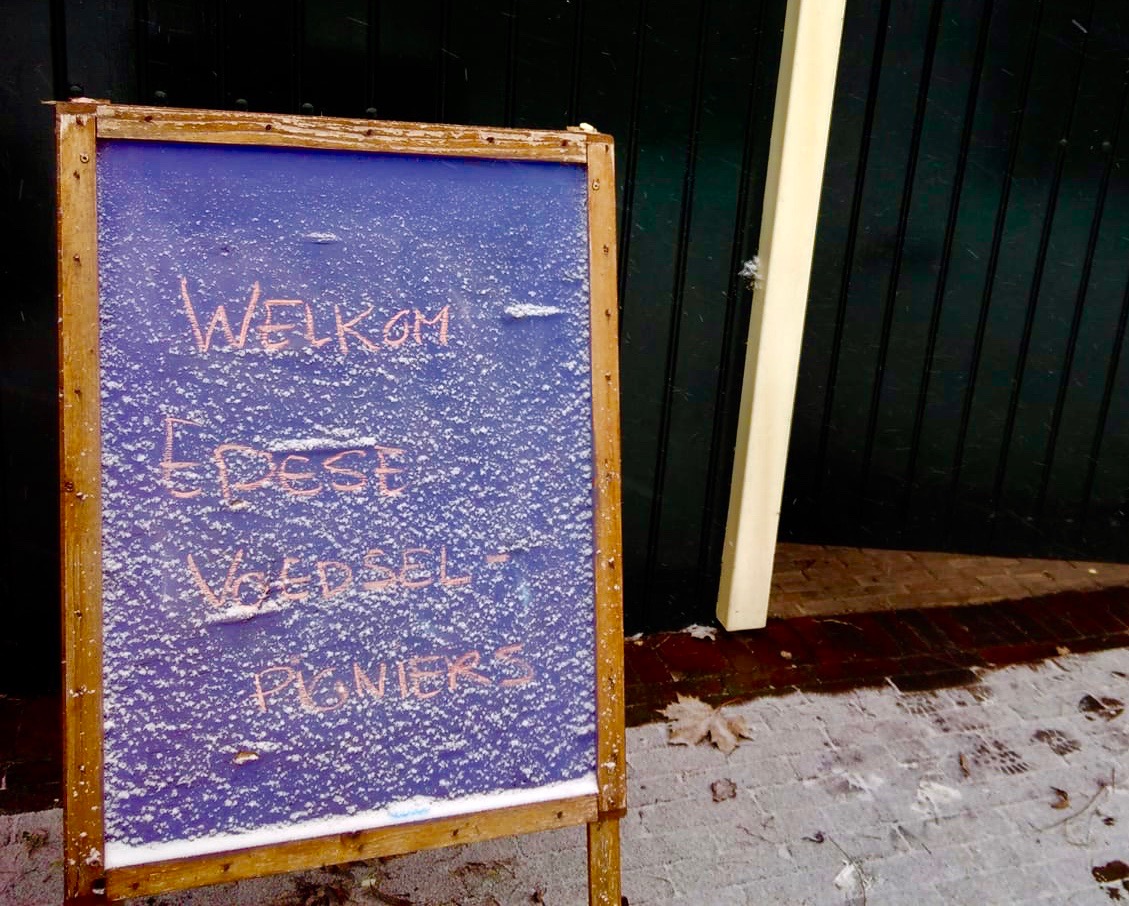 WELKOM
EDESE
VOEDSEL-
PIGNIERS